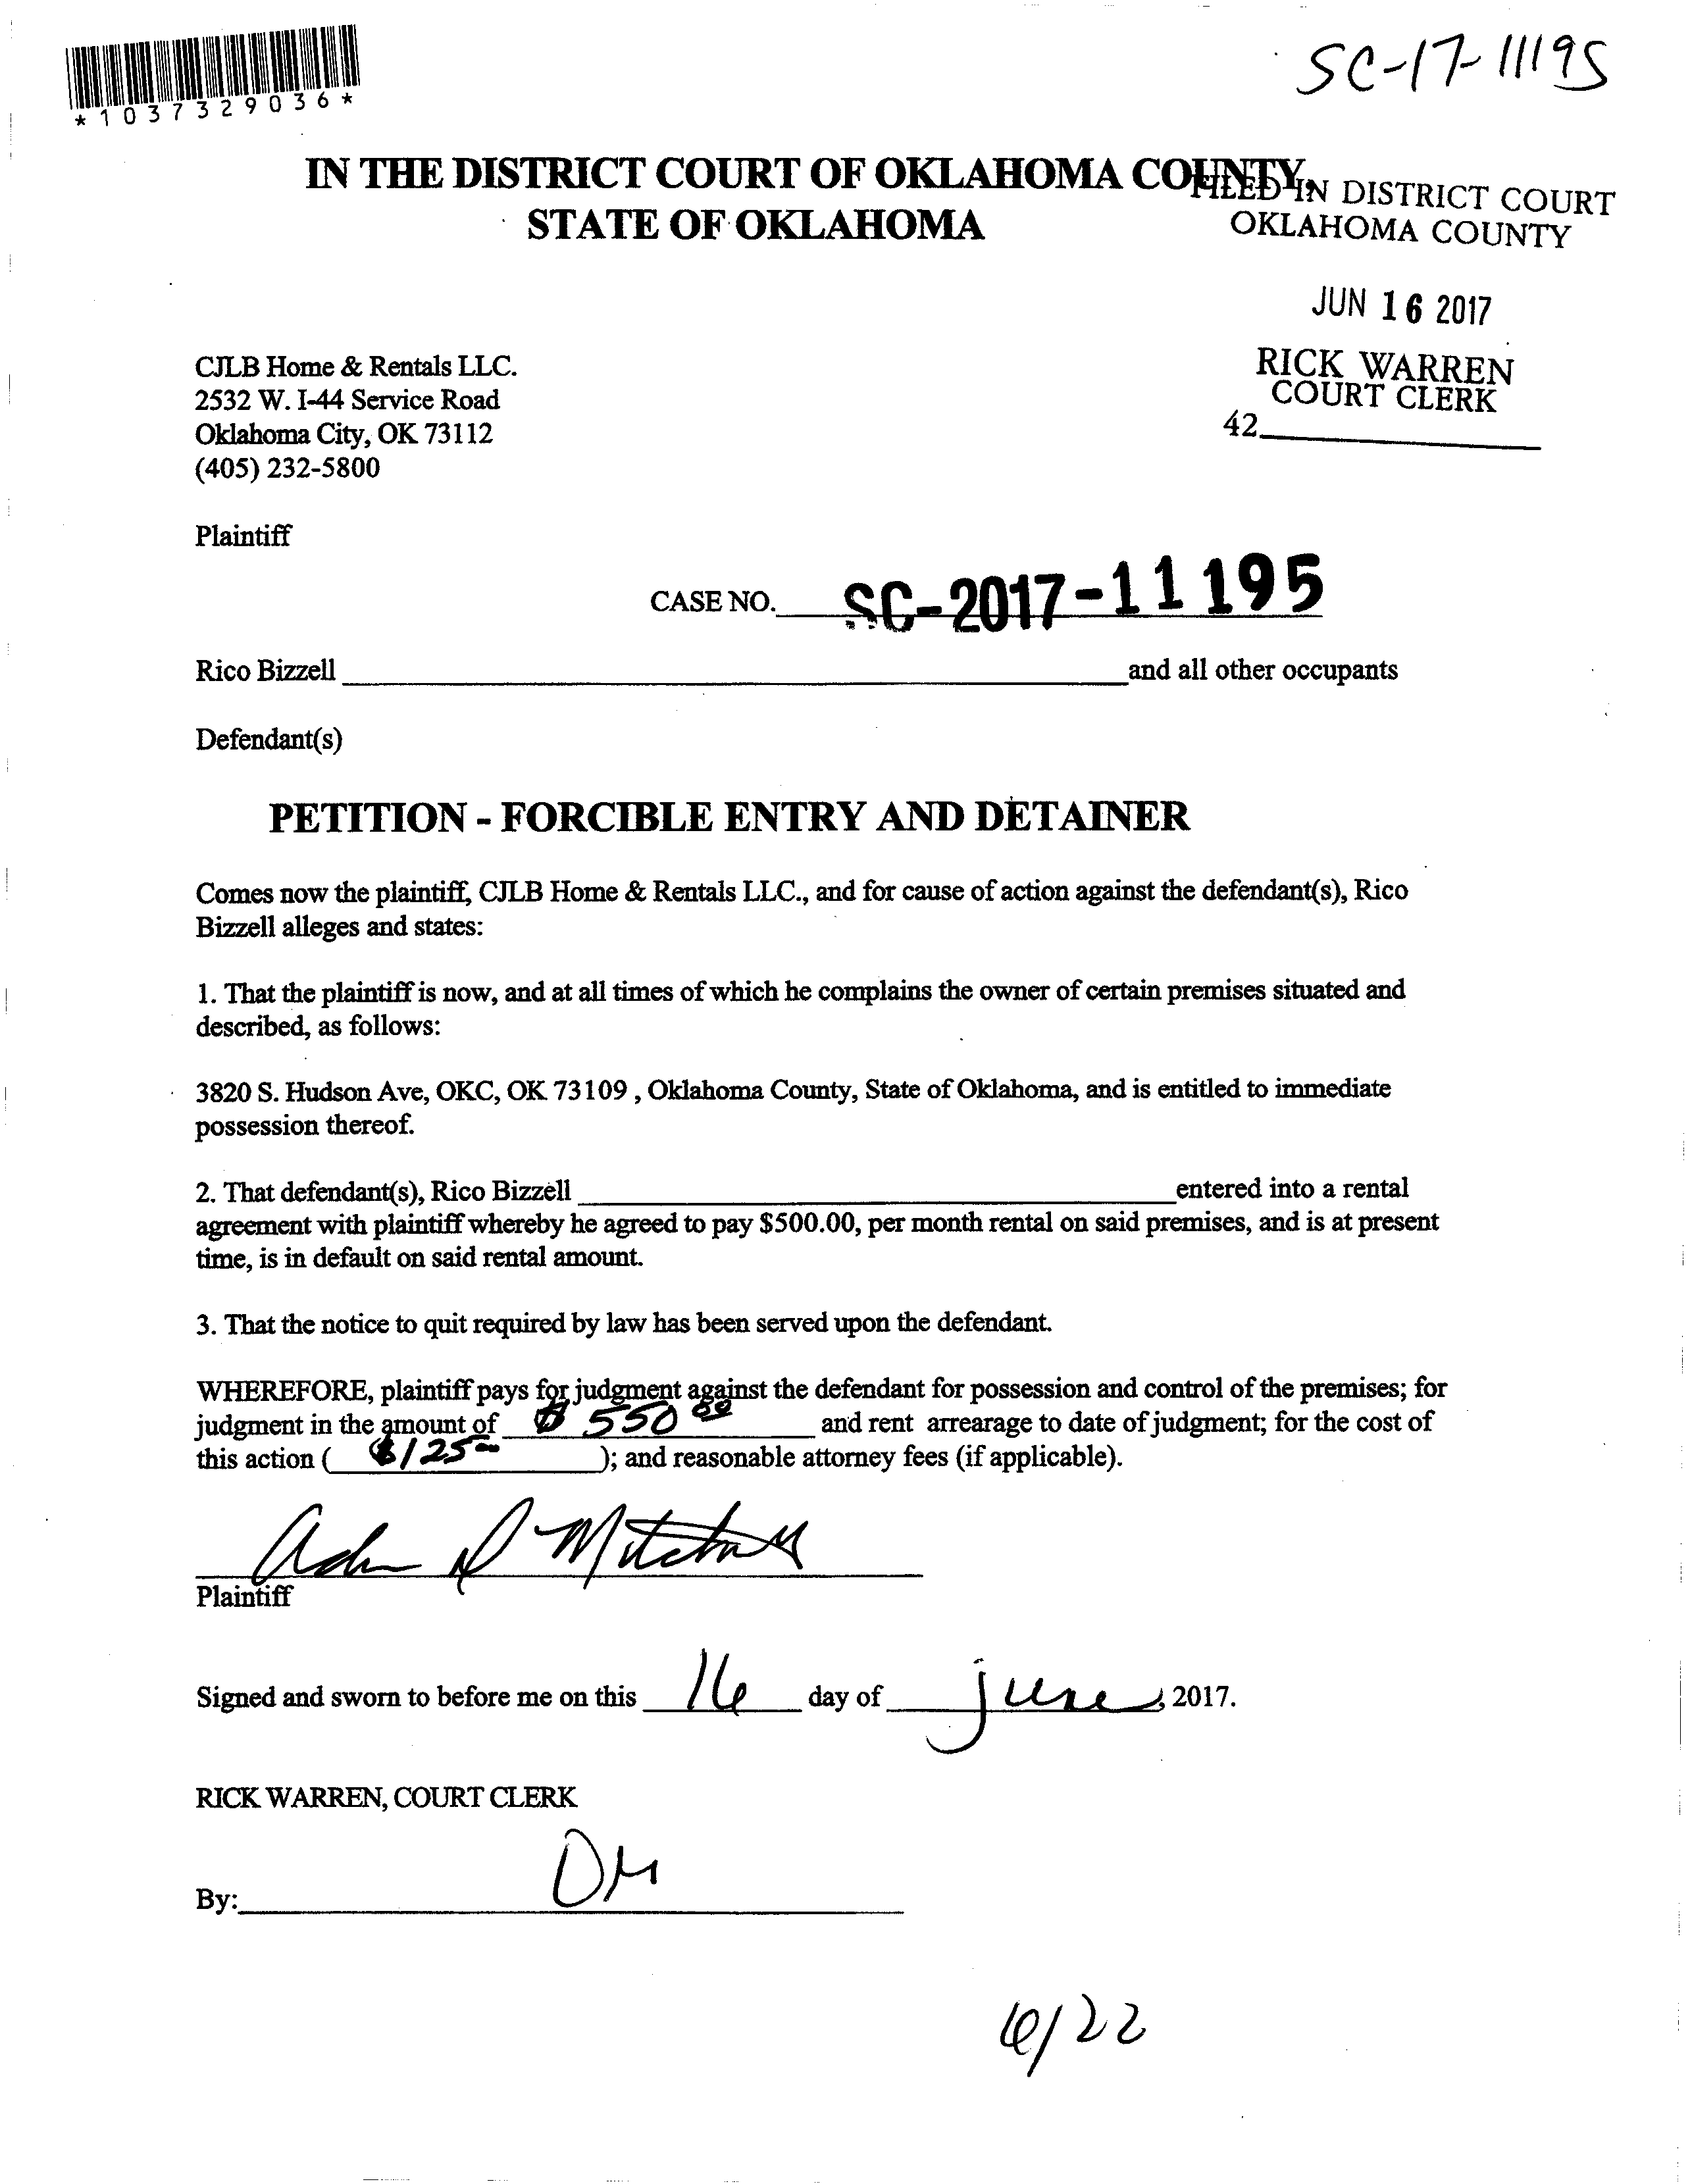 SC-17-11195
*1037329036*
IN THE DISTRICT COURT OF OKLAHOMA COUNTY,
STATE OF OKLAHOMA
FILED IN DISTRICT COURT
OKLAHOMA COUNTY
JUN 16 2017
RICK WARREN
COURT CLERK
42
CJLB Home & Rentals LLC.
2532 W. I-44 Service Road
Oklahoma City, OK 73112
(405) 232-5800
Plaintiff
CASE NO. SC-2017-11195
Rico Bizzell and all other occupants
Defendant(s)
PETITION - FORCIBLE ENTRY AND DETAINER
Comes now the plaintiff, CJLB Home & Rentals LLC., and for cause of action against the defendant(s), Rico
Bizzell alleges and states:
1. That the plaintiff is now, and at all times of which he complains the owner of certain premises situated and
described, as follows:
3820 S. Hudson Ave, OKC, OK 73109 , Oklahoma County, State of Oklahoma, and is entitled to immediate
possession thereof.
2. That defendant(s), Rico Bizzell entered into a rental
agreement with plaintiff whereby he agreed to pay $500.00, per month rental on said premises, and is at present
time, is in default on said rental amount.
3. That the notice to quit required by law has been served upon the defendant.
WHEREFORE, plaintiff pays for judgment against the defendant for possession and control of the premises; for
judgment in the amount of $ 550 00 and rent arrearage to date of judgment; for the cost of
this action ( $125 ); and reasonable attorney fees (if applicable).
Plaintiff
Signed and sworn to before me on this 16 day of june, 2017.
RICK WARREN, COURT CLERK
DM
By:
6/22